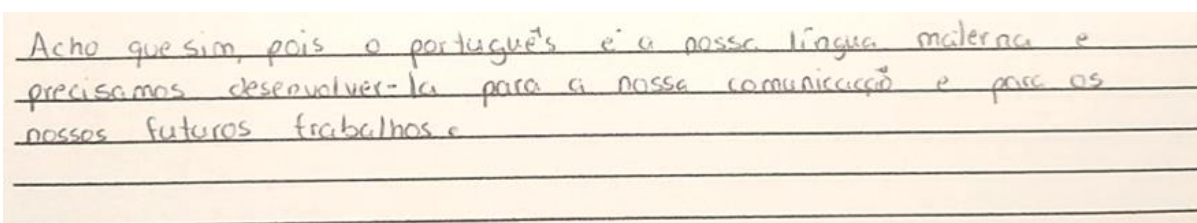 Acho que sim, pois o português é a nossa língua materna e
precisamos desenvolver-la para a nossa comunicação e para os
nossos futuros trabalhos.